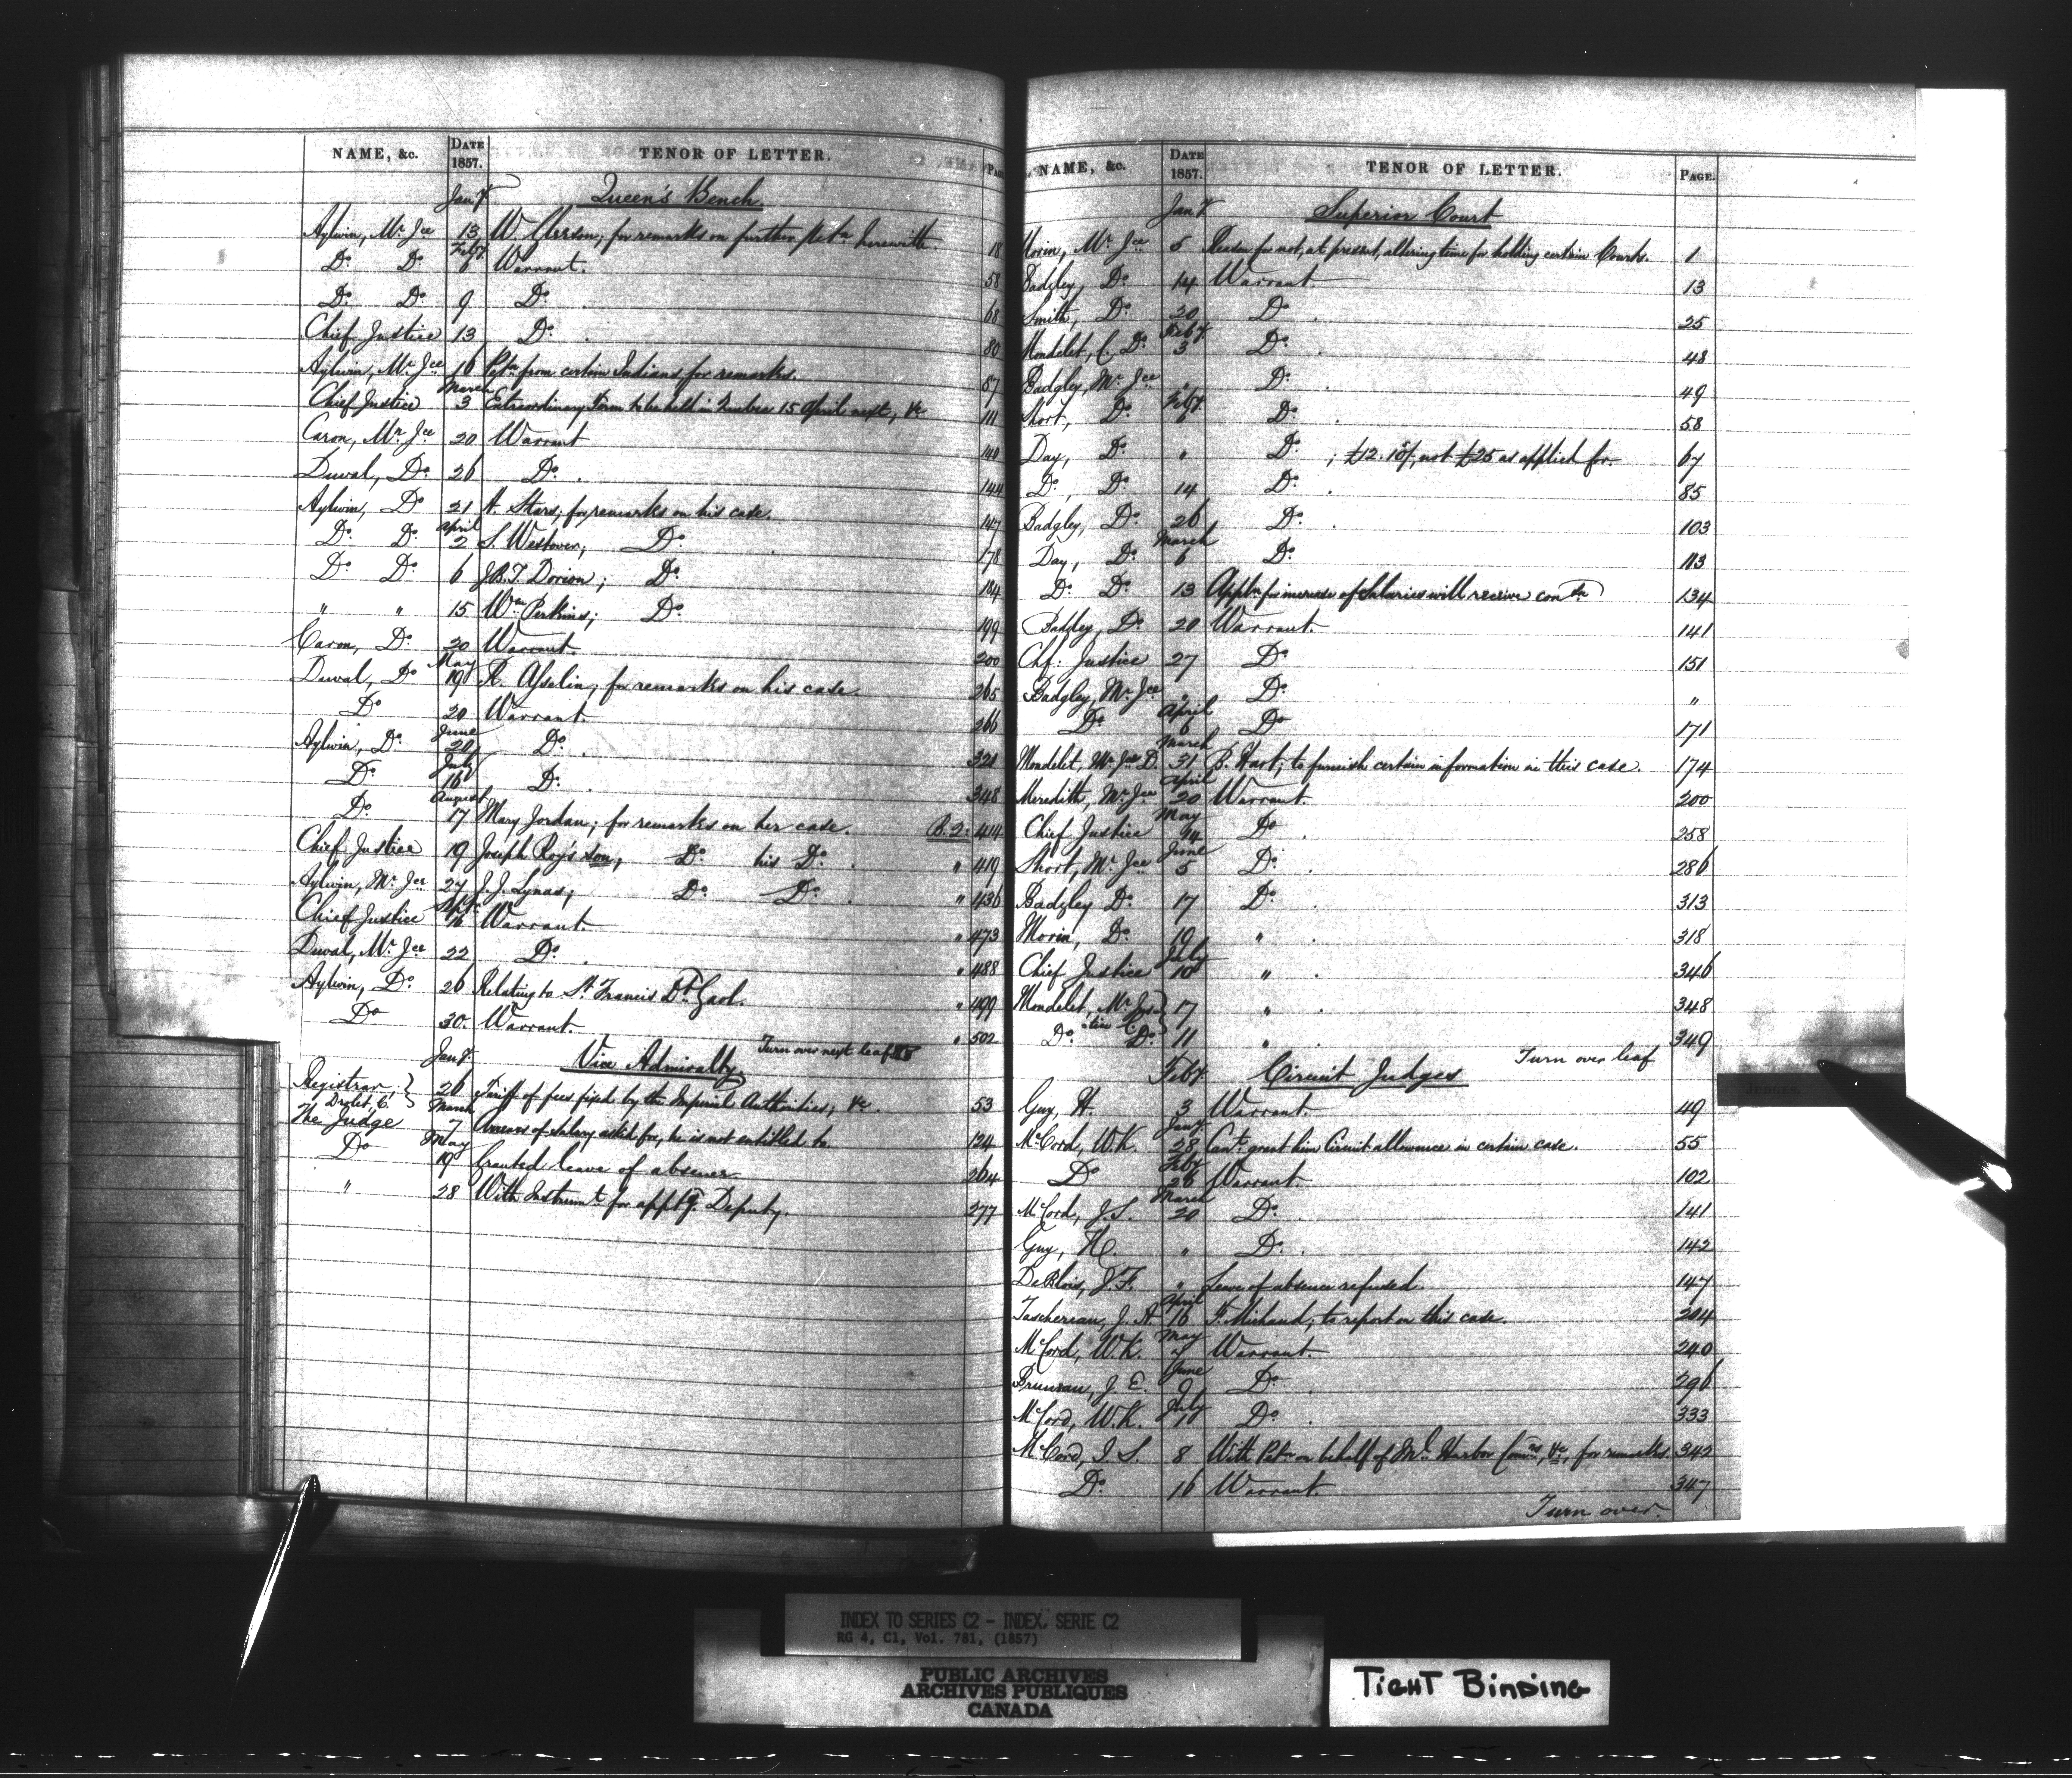 NAME, &c. DATE 1857. TENOR OF LETTER. PAGE
Jany. Queen's Bench.
Aylwin, Mr. Jce 13 for remarks on further Petn. herewith. 18
Do. Do. Feby. 6 Warrant. 58
Do. Do. 9 Do. 68
Chief Justice 13 Do. 80
Aylwin, Mr. Jce 16 Petn. from certain Indians for remarks. 87
Chief Justice March 3 Extraordinary Term to be held in Quebec 15 April next, &c 111
Caron, Mr. Jce 20 Warrant 140
Duval, Do. 26 Do. 144
Aylwin, Do 21 for remarks on his case. 147
Do. Do. April 2 S. Westover; Do. 178
Do. Do. 6 J.B.T. Dorion; Do. 184
" " 15 Wm. Perkins; Do. 199
Caron, Do. 20 Warrant. 200
Duval, Do May 19 R. Asselin; for remarks on his case. 265
Do 20 Warrant. 266
Aylwin, Do. June 20 Do. 321
Do. July 16 Do. 348
Do. August 17 Mary Jordan; for remarks on her case. B.2: 414
Chief Justice 19 Joseph Roy's son; Do. his Do. " 419
Aylwin, Mr. Jce 27 J.J. Lynas; Do. Do. " 436
Chief Justice Sept. 16 Warrant. " 473
Duval, Mr. Jce 22 Do. " 488
Aylwin, Do. 26 Relating to St. Francis Dt. Gaol. " 499
Do 30. Warrant. " 502
Turn over next leaf
Jany. Vice Admiralty.
Registrar, Drolet, C. } 26 Tariff of fees fixed by the Imperial Authorities, &c. 53
The Judge March 7 Arrears of Salary asked for, he is not entitled to. 124
Do May 19 Granted leave of absence 264
" 28 With Instrumt. for apptg. Deputy. 277
NAME, &c. DATE 1857. TENOR OF LETTER. PAGE.
Jany. Superior Court
Morin, Mr. Jce 5 Reason for not, at present, altering time for holding certain Courts. 1
Badgley, Do. 14 Warrant 13
Smith, Do. 20 Do. 25
Mondelet, C. Do. Feby. 3 Do. 48
Badgley, Mr. Jce " Do. 49
Short, Do. Feby. 6 Do. 58
Day, Do. " Do. ; £12.10/, not £25 as applied for. 67
Do, Do. 14 Do. 85
Badgley, Do. 26 Do. 103
Day, Do. March 6 Do. 113
Do. Do. 13 Appln for increase of Salaries will receive conson. 134
Badgley, Do. 20 Warrant. 141
Chf: Justice 27 Do 151
Badgley, Mr. Jce " Do. "
Do. April 6 Do 171
Mondelet, Mr. Jce D. March 31 B. Hart; to furnish certain information in this case. 174
Meredith, Mr. Jce April 20 Warrant. 200
Chief Justice May 14 Do. 258
Short, Mr. Jce June 5 Do. 286
Badgley Do. 17 Do. 313
Morin, Do. 19 " 318
Chief Justice July 10 " 346
Mondelet, Mr. Jus-tice C. } 17 " 348
Do. Do. 11 " 349
Turn over leaf
Feby. Circuit Judges
Guy, H. 3 Warrant. 49
McCord, W.K. Jany. 28 Cant. grant him Circuit allowance in certain case. 55
Do Feby 26 Warrant 102
McCord, J.S. March 20 Do. 141
Guy, H. " Do. 142
DeBlois, J.F. " Leave of absence refused. 147
Taschereau, J.A. April 16 F. Michaud; to report on this case. 204
McCord, W.K. May 7 Warrant. 240
Bruneau, J.E. June 9 Do. 296
McCord, W.K. July 1 Do. 333
McCord, J.S. 8 With Petn on behalf of Ml. Harbor Comrs, &c, for remarks. 342
Do. 16 Warrant. 347
Turn over.
JUDGES.
INDEX TO SERIES C2 - INDEX, SERIE C2
RG 4, C1, Vol. 781, (1857)
PUBLIC ARCHIVES
ARCHIVES PUBLIQUES
CANADA
TIGHT BINDING